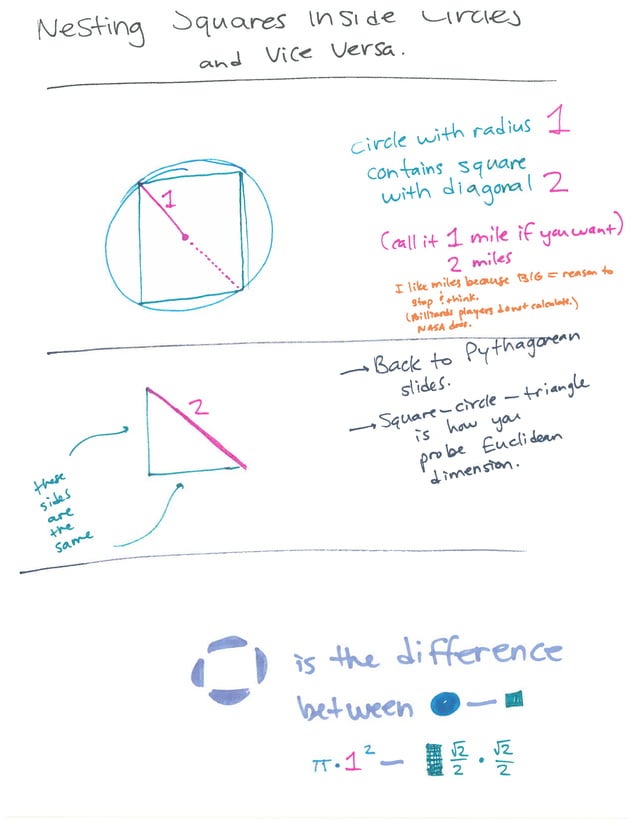 Nesting Squares Inside Circles
and Vice Versa.
circle with radius 1
contains square
with diagonal 2
(call it 1 mile if you want)
2 miles
I like miles because BIG = reason to
stop & think.
(Billiards players do not calculate.)
NASA does.
1
→ Back to Pythagorean
slides.
→ Square-circle-triangle
is how you
probe Euclidean
dimension.
2
these
sides
are
the
same
is the difference
between —
π · 1² — √2/2 · √2/2